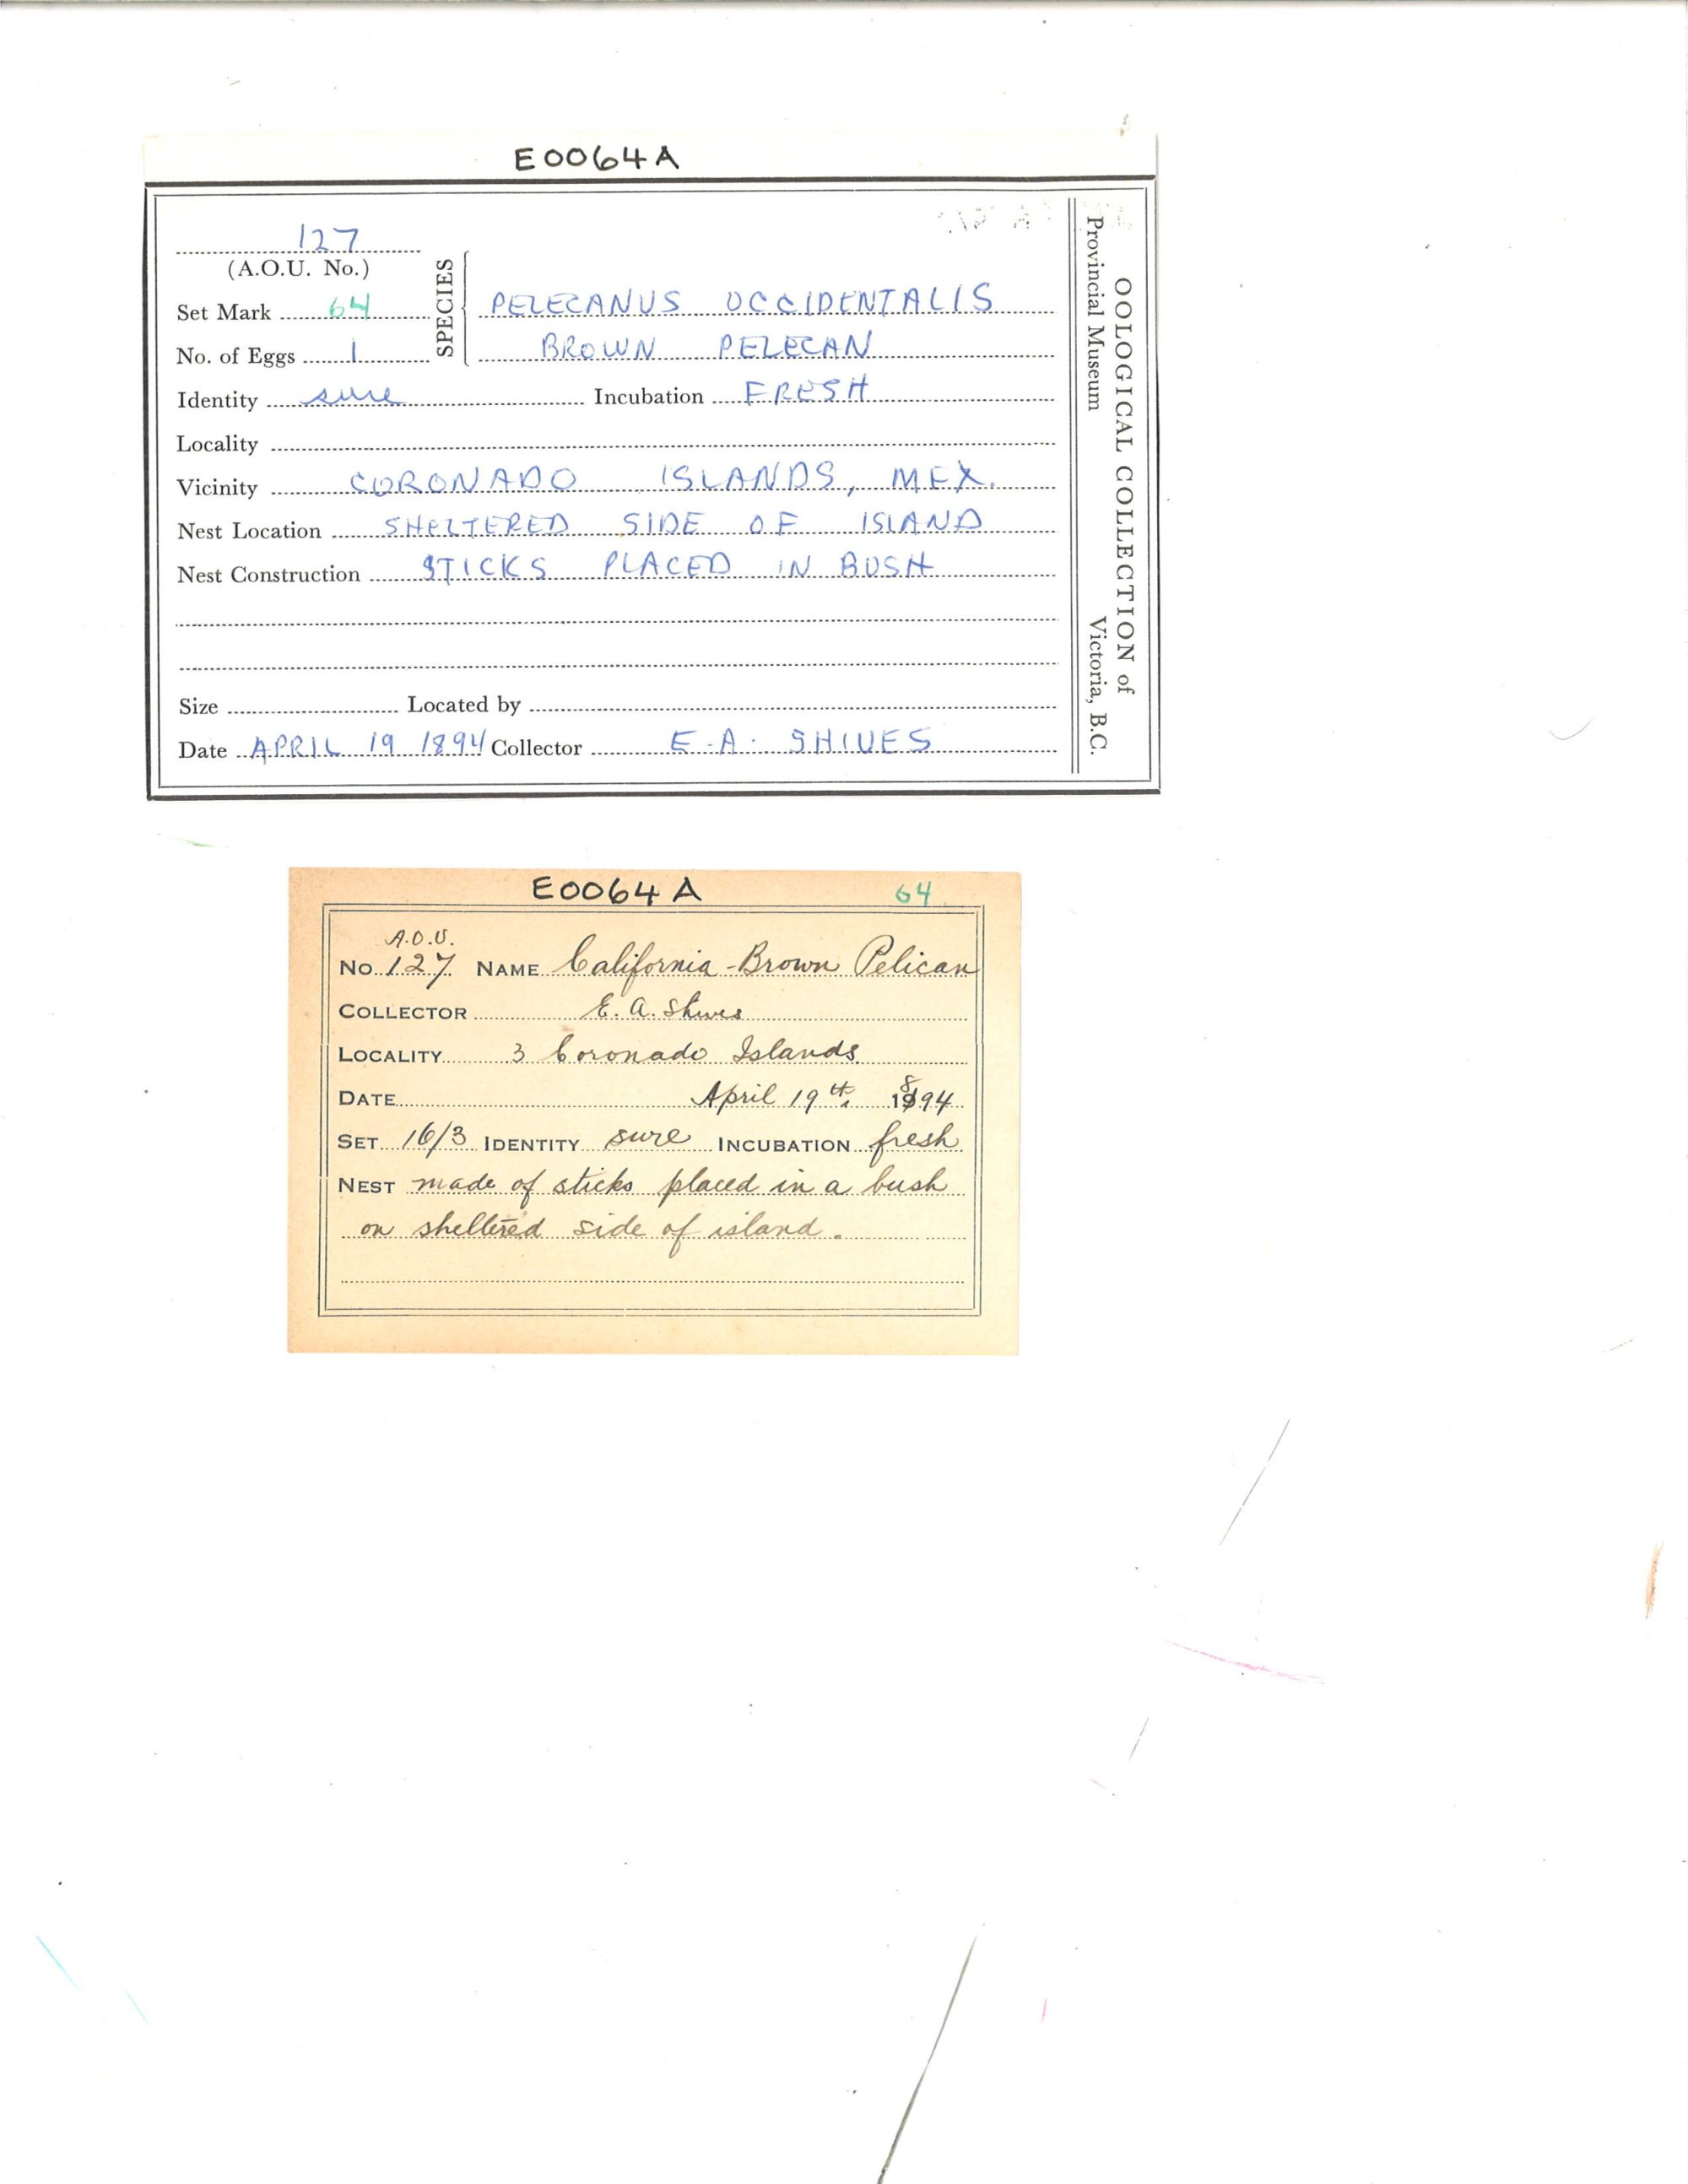 E0064A
127
(A.O.U. No.)
SPECIES
Set Mark 64
PELECANUS OCCIDENTALIS
No. of Eggs 1
BROWN PELECAN
Identity sure Incubation FRESH
Locality
Vicinity CORONADO ISLANDS, MEX.
Nest Location SHELTERED SIDE OF ISLAND
Nest Construction STICKS PLACED IN BUSH
Size Located by
Date APRIL 19 1894 Collector E.A. SHIVES
OOLOGICAL COLLECTION of
Provincial Museum Victoria, B.C.
E0064A 64
A.O.U.
No. 127 NAME California-Brown Pelican
COLLECTOR E. A. Shives
LOCALITY 3 Coronado Islands.
DATE April 19th, 1894
SET 16/3 IDENTITY sure INCUBATION fresh
NEST made of sticks placed in a bush
on sheltered side of island.